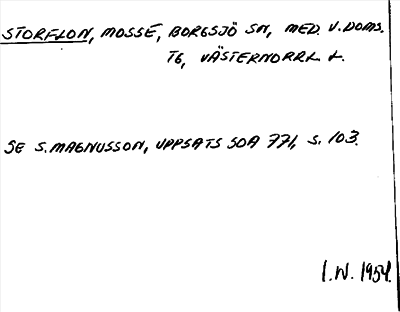 STORFLON, MOSSE, BORGSJÖ SN, MED. V. DOMS.
TG, VÄSTERNORRL. L.
SE S. MAGNUSSON, UPPSATS SOA 771, S. 103.
I.W. 1954.